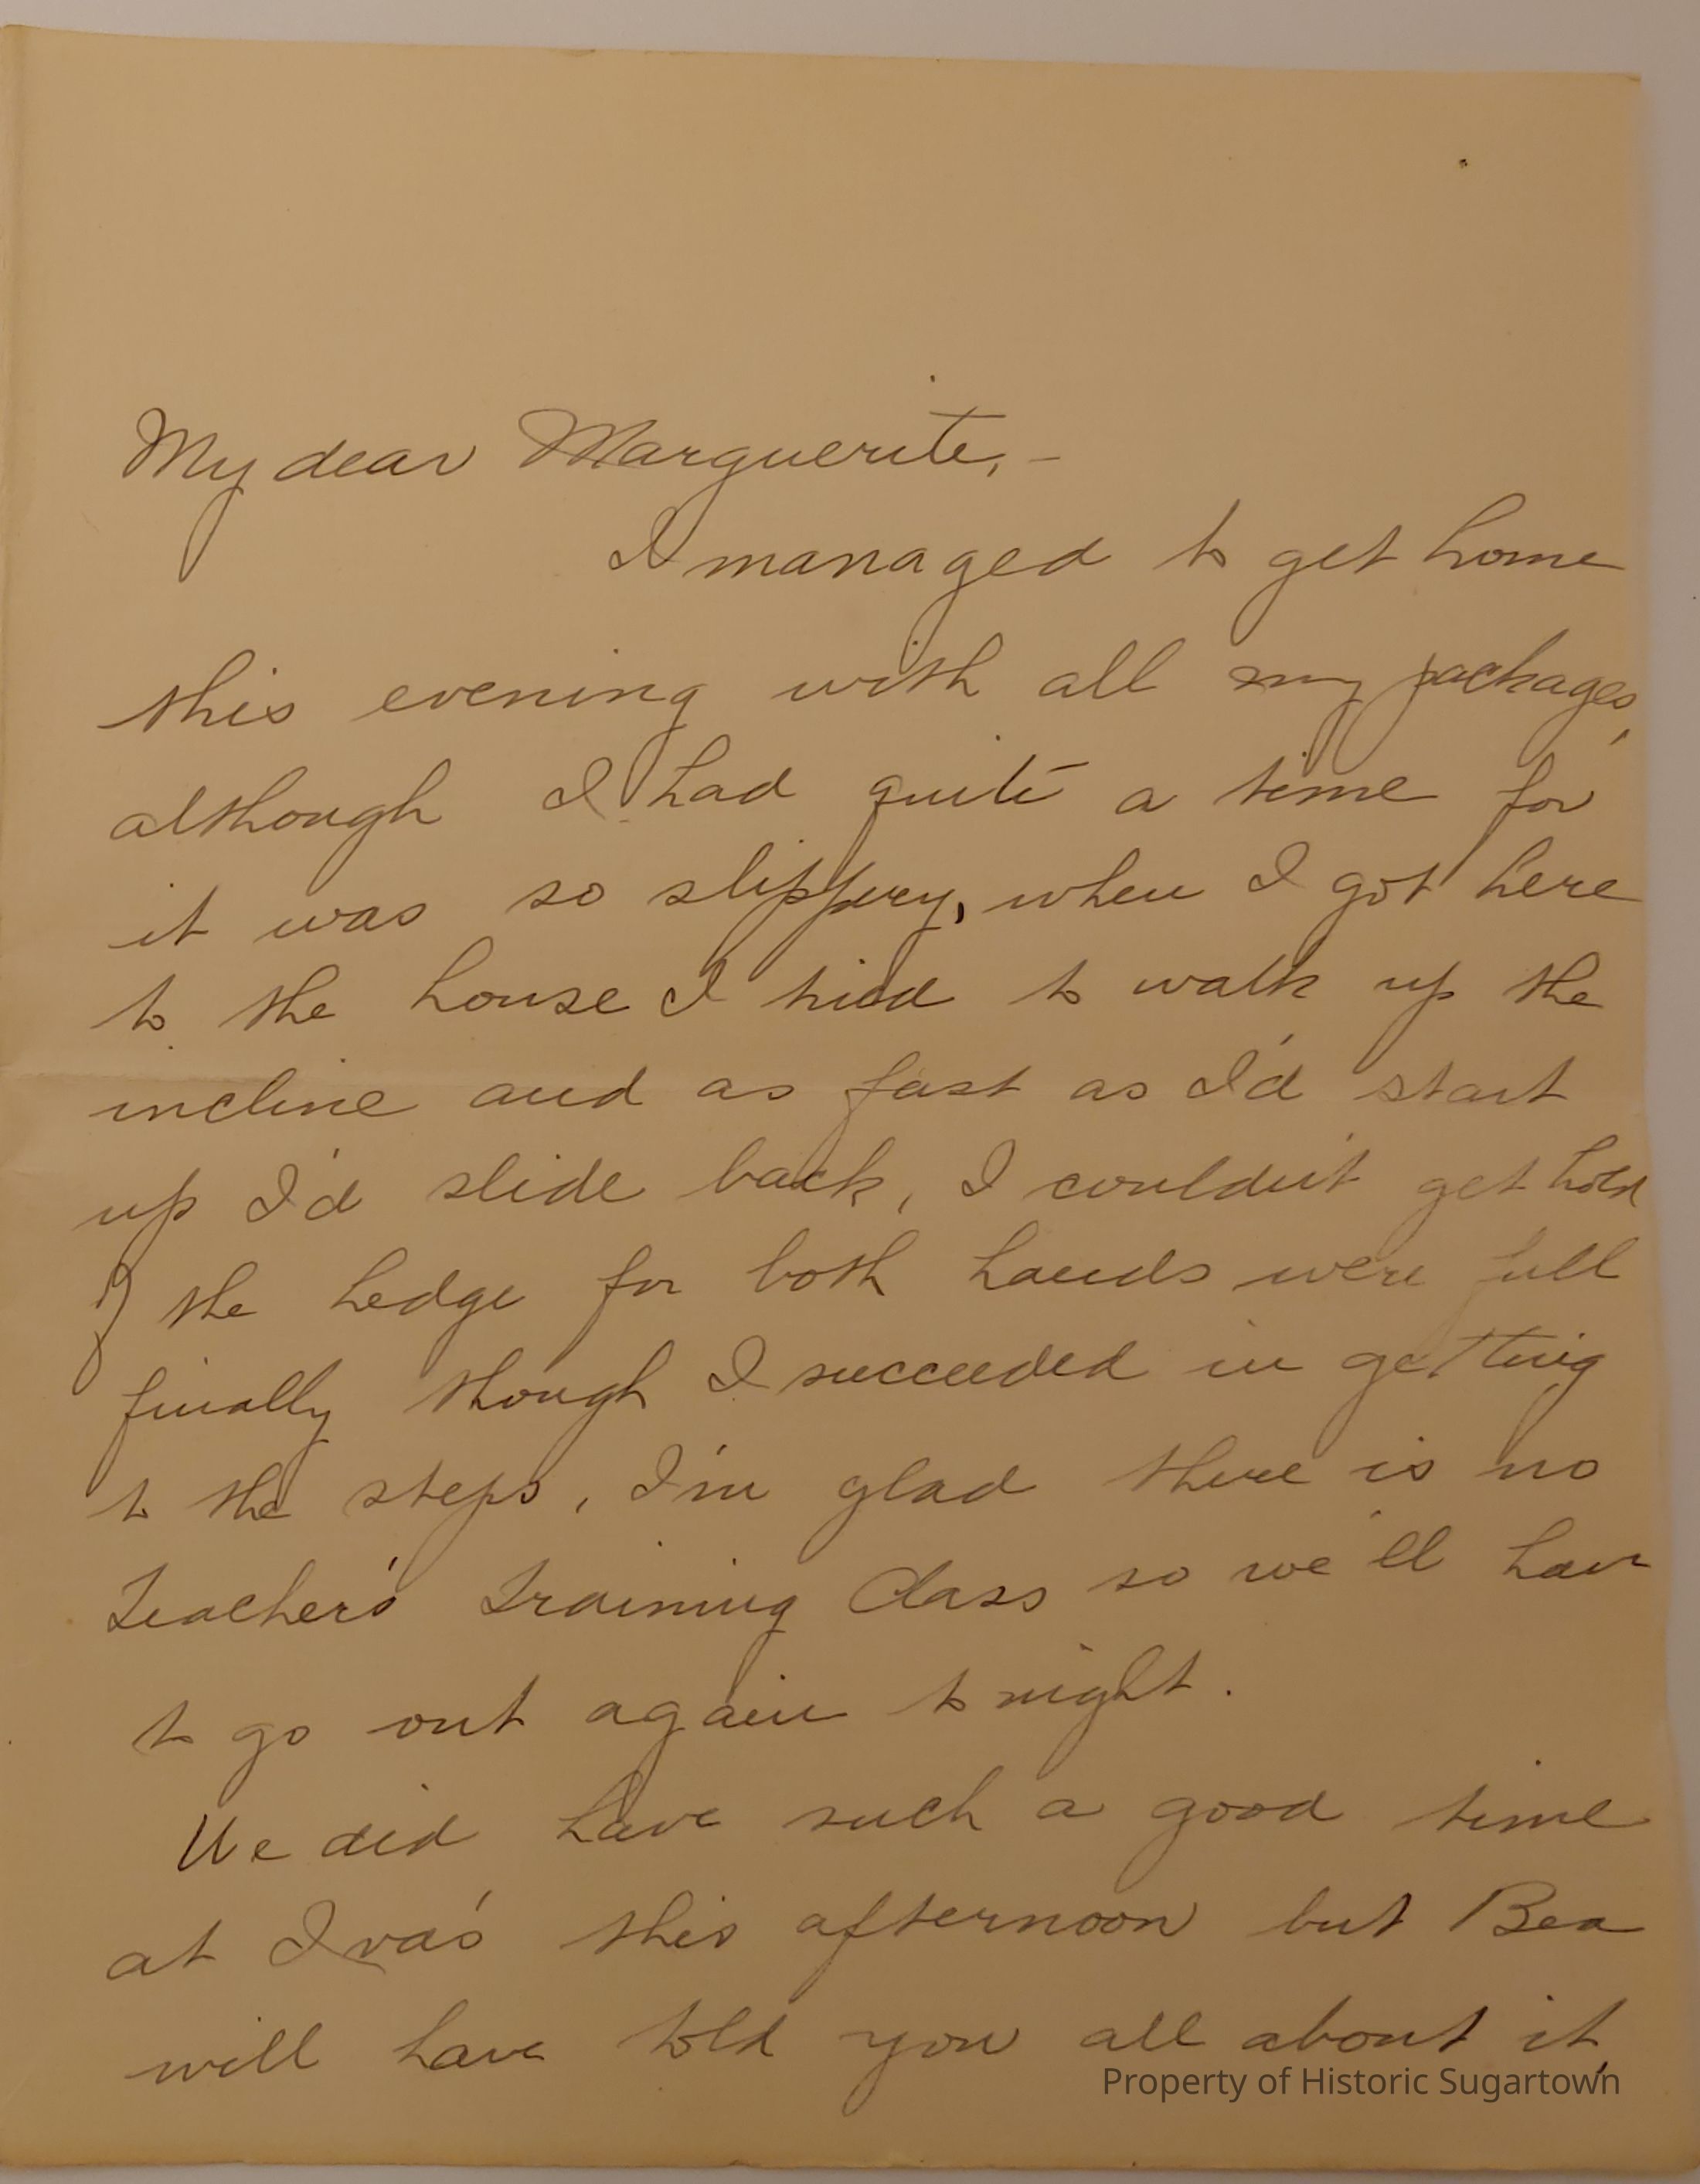 My dear Marguerite, -
I managed to get home
this evening with all my packages,
although I had quite a time for
it was so slippery, when I got here
to the house I tried to walk up the
incline and as fast as I'd start
up I'd slide back, I couldn't get hold
of the hedge for both hands were full
finally though I succeeded in getting
to the steps, I'm glad there is no
Teacher's Training Class so we'll have
to go out again tonight.
We did have such a good time
at Iva's this afternoon but Bea
will have told you all about it,
Property of Historic Sugartown